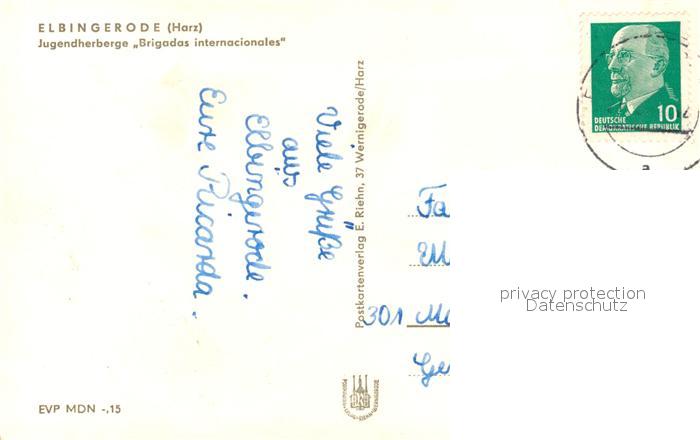 ELBINGERODE (Harz)
Jugendherberge „Brigadas internacionales"
Viele Grüße
aus
Elbingerode.
Eure Ricarda.
Postkartenverlag E. Riehn, 37 Wernigerode/Harz
10
DEUTSCHE
DEMOKRATISCHE REPUBLIK
Fa
M
301 Ma
Ge
privacy protection
Datenschutz
EVP MDN -,15